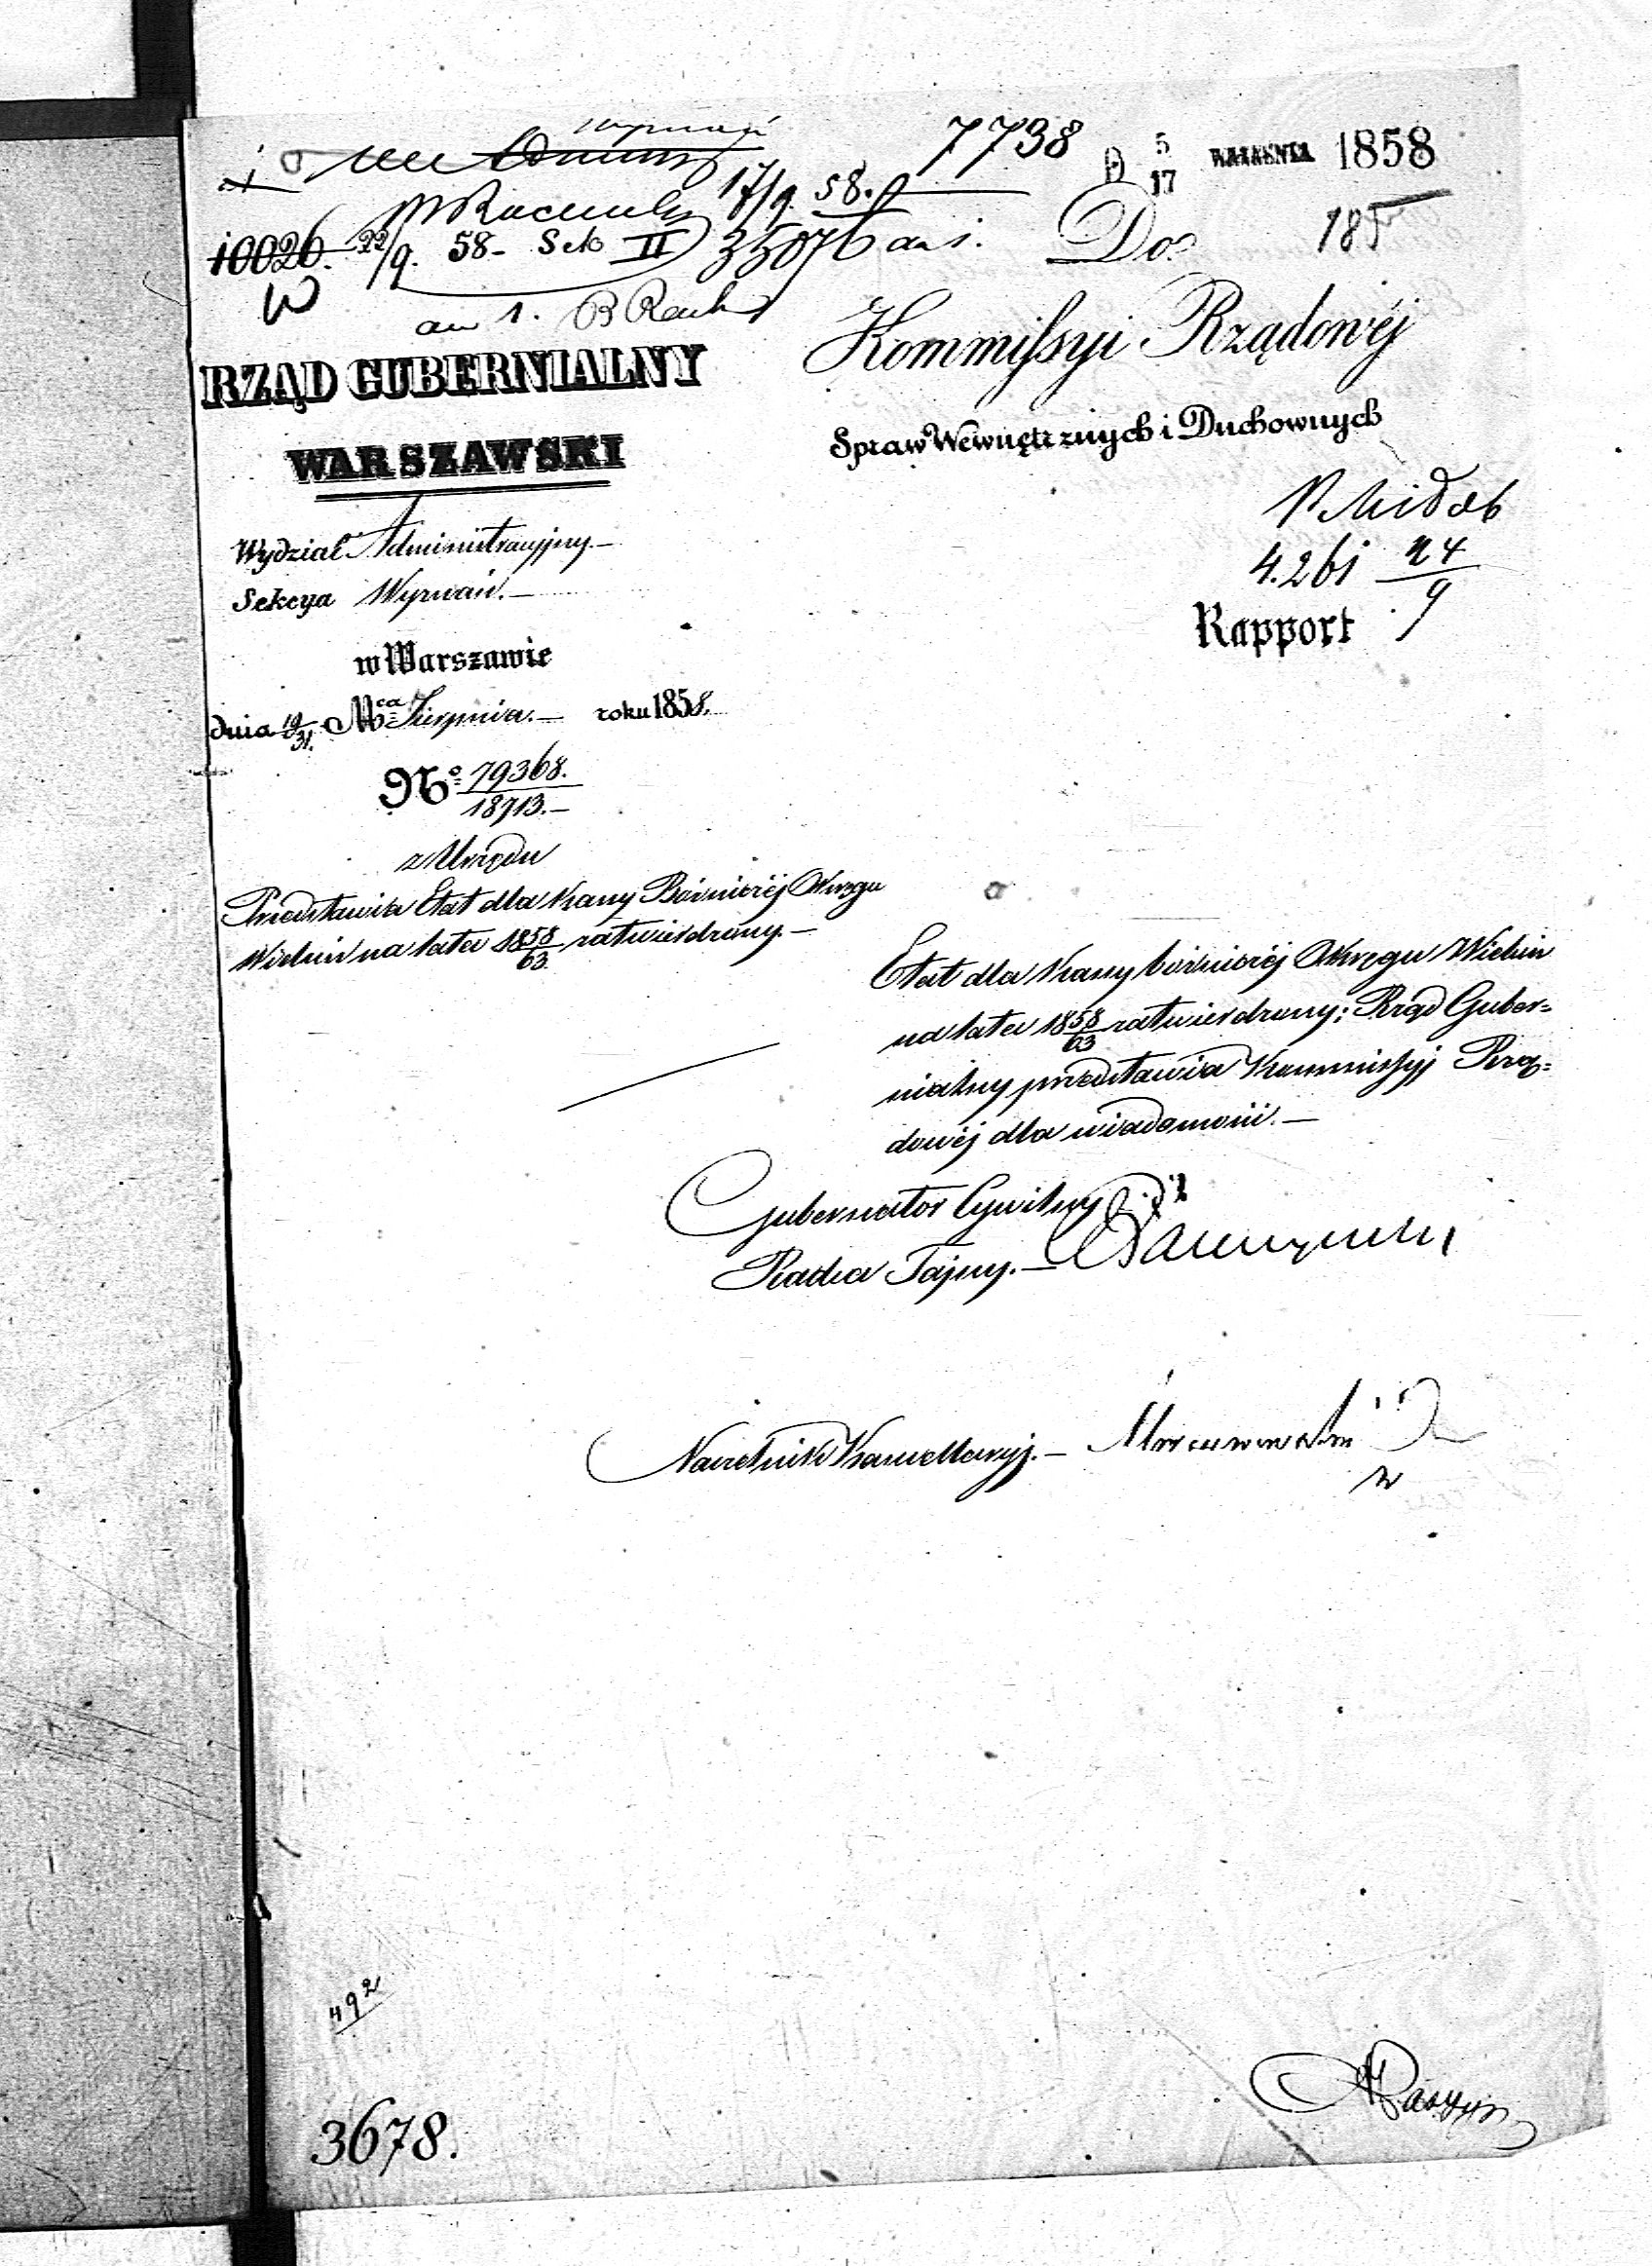 7738
5
17
WRZEŚNIA 1858
17/9 58.
10026. 22/9. 58- Sek II 35076 an 1.
an 1.
Do
185
RZĄD GUBERNIALNY
WARSZAWSKI
Wydział Administracyjny.—
Sekcya Wyznań.—
w Warszawie
dnia 19/31. Mca Sierpnia.— roku 1858.
No 79368.
18713.—
z Urzędu
Przedstawia Etat dla Kassy Bóżniczéj Okręgu
Wieluń na lata 1858/63 zatwierdzony.—
Kommissyi Rządowéj
Spraw Wewnętrznych i Duchownych
4.261 24/9
Rapport
Etat dla Kassy bóżniczéj Okręgu Wieluń
na lata 1858/63 zatwierdzony; Rząd Guber=
nialny przedstawia Kommissyj Rzą=
dowéj dla wiadomości.—
Gubernator Cywilny
Radca Tajny.—
Naczelnik Kancellaryj.—
492
3678.